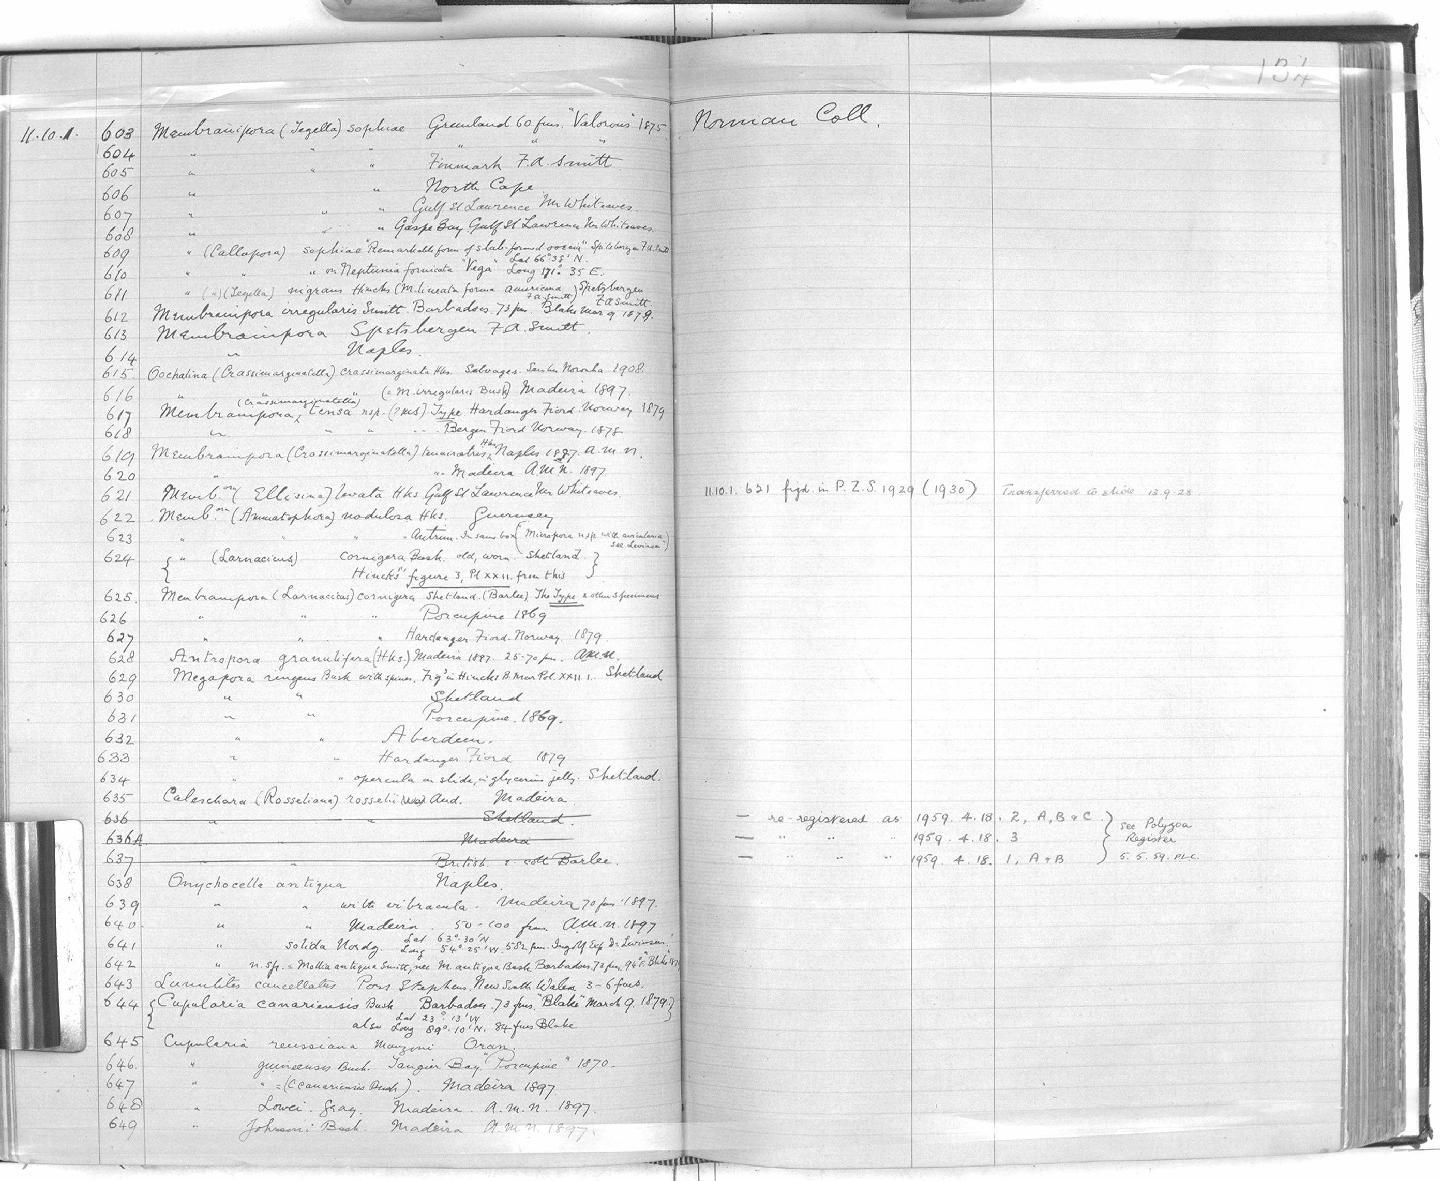 134
11.10.1. 603 Membranipora (Tegella) sophiae Greenland 60 fms. "Valorous" 1875 Norman Coll.
604 " " " " " "
605 " " " Finmark F.A. Smitt
606 " " North Cape
607 " " " Gulf St Lawrence Mr Whiteaves
608 " " " Gaspe Bay Gulf St Lawrence Mr Whiteaves.
609 " (Callopora) sophiae "Remarkable form of slab-formed ooecia" Spitsbergen F.A. Smitt
610 " " " on Neptunia fornicata "Vega" Lat 66° 38' N. Long 171° 35 E.
611 " (") (Tegella) nigrans Hincks (M. lineata forma americana F.A. Smitt) Spetzbergen F.A. Smitt
612 Membranipora irregularis Smitt. Barbadoes. 73 fms. "Blake" Mar 9 1879.
613 Membranipora Spetsbergen F.A. Smitt.
614 " Naples.
615 Oochalina (Crassimarginatella) crassimarginata Hks. Salvages. Senhor Noronha 1908
616 " " " (= M. irregularis Busk) Madeira 1897.
617 Membranipora (Crassimarginatella) tensa nsp. (? MS) Type Hardanger Fiord. Norway 1879
618 " " " Bergen Fiord Norway. 1878
619 Membranipora (Crassimarginatella) Hks Naples 1887. A.M.N.
620 " " Madeira A.M.N. 1897
621 Memb.ora (Ellisina) levata Hks Gulf St Lawrence Mr Whiteaves. 11.10.1. 621 figd. in P.Z.S. 1929 (1930) Transferred to slide 13.9.28
622 Memb.ora (Ammatophora) nodulosa Hks. Guernsey
623 " " " Antrim. In same box (Micropora nsp. with avicularia see Levinsen")
624 { " (Larnacicus) cornigera Busk. old, worn Shetland }
Hincks' figure 3, Pl XXII. from this
625. Membranipora (Larnacicus) cornigera Shetland. (Barlee) The Type & other specimens
626 " " " Porcupine 1869
627 " " " Hardanger Fiord. Norway. 1879.
628 Antropora granulifera (Hks.) Madeira 1897. 25-70 fm. A.M.N.
629 Megapora ringens Busk with spines. Fig'd in Hincks B. Mar Pol. XXII 1. Shetland
630 " " Shetland
631 " " Porcupine. 1869.
632 " " Aberdeen.
633 " " Hardanger Fiord 1879
634 " " opercula on slide, in glycerine jelly. Shetland.
635 Caleschara (Rosseliana) rosselii Aud. Madeira
636 " " Shetland. — re-registered as 1959. 4. 18. 2, A, B & C.
636A Madeira — " " " 1959. 4. 18. 3 } see Polyzoa Register
637 " " British. Barlee. — " " " 1959. 4. 18. 1, A & B 5.5.59. PLC.
638 Onychocella antiqua Naples.
639 " " with vibracula. Madeira 70 fms 1897.
640. " " Madeira 50-100 fms A.M.N. 1897
641 " solida Nordg. Lat 63° 30' N Long 54° 25' W. 582 fm. Ingolf Exp Dr Levinsen.
642 " n. sp. = Mollia antiqua Smitt, nec M. antiqua Busk Barbadoes, 73 fm, "Blake"
643 Lunulites cancellatus Port Stephens, New South Wales 3-6 fms.
644 { Cupularia canariensis Busk Barbadoes. 73 fms. "Blake" March 9. 1879. }
also Lat 23° 13' W Long 89° 10' N. 84 fms Blake
645 Cupularia reussiana Manzoni Oran.
646. " guineensis Busk. Tangier Bay "Porcupine" 1870.
647 " " = (C canariensis Busk). Madeira 1897
648 " Lowei. Gray. Madeira. A.M.N. 1897.
649 " Johnsoni Busk. Madeira A.M.N. 1897.